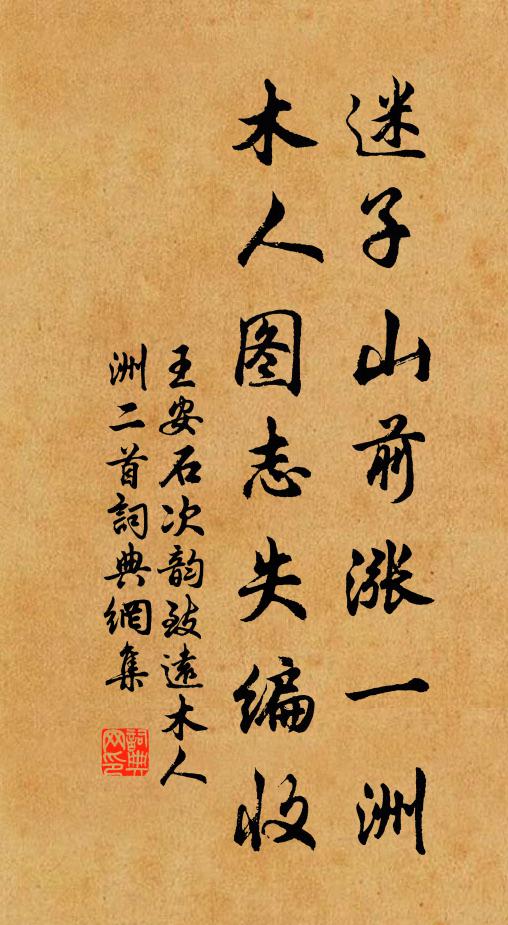 迷子山前涨一洲
木人图志失编收
王安石次韵致遠木人
洲二首詞典網集
詞典網印